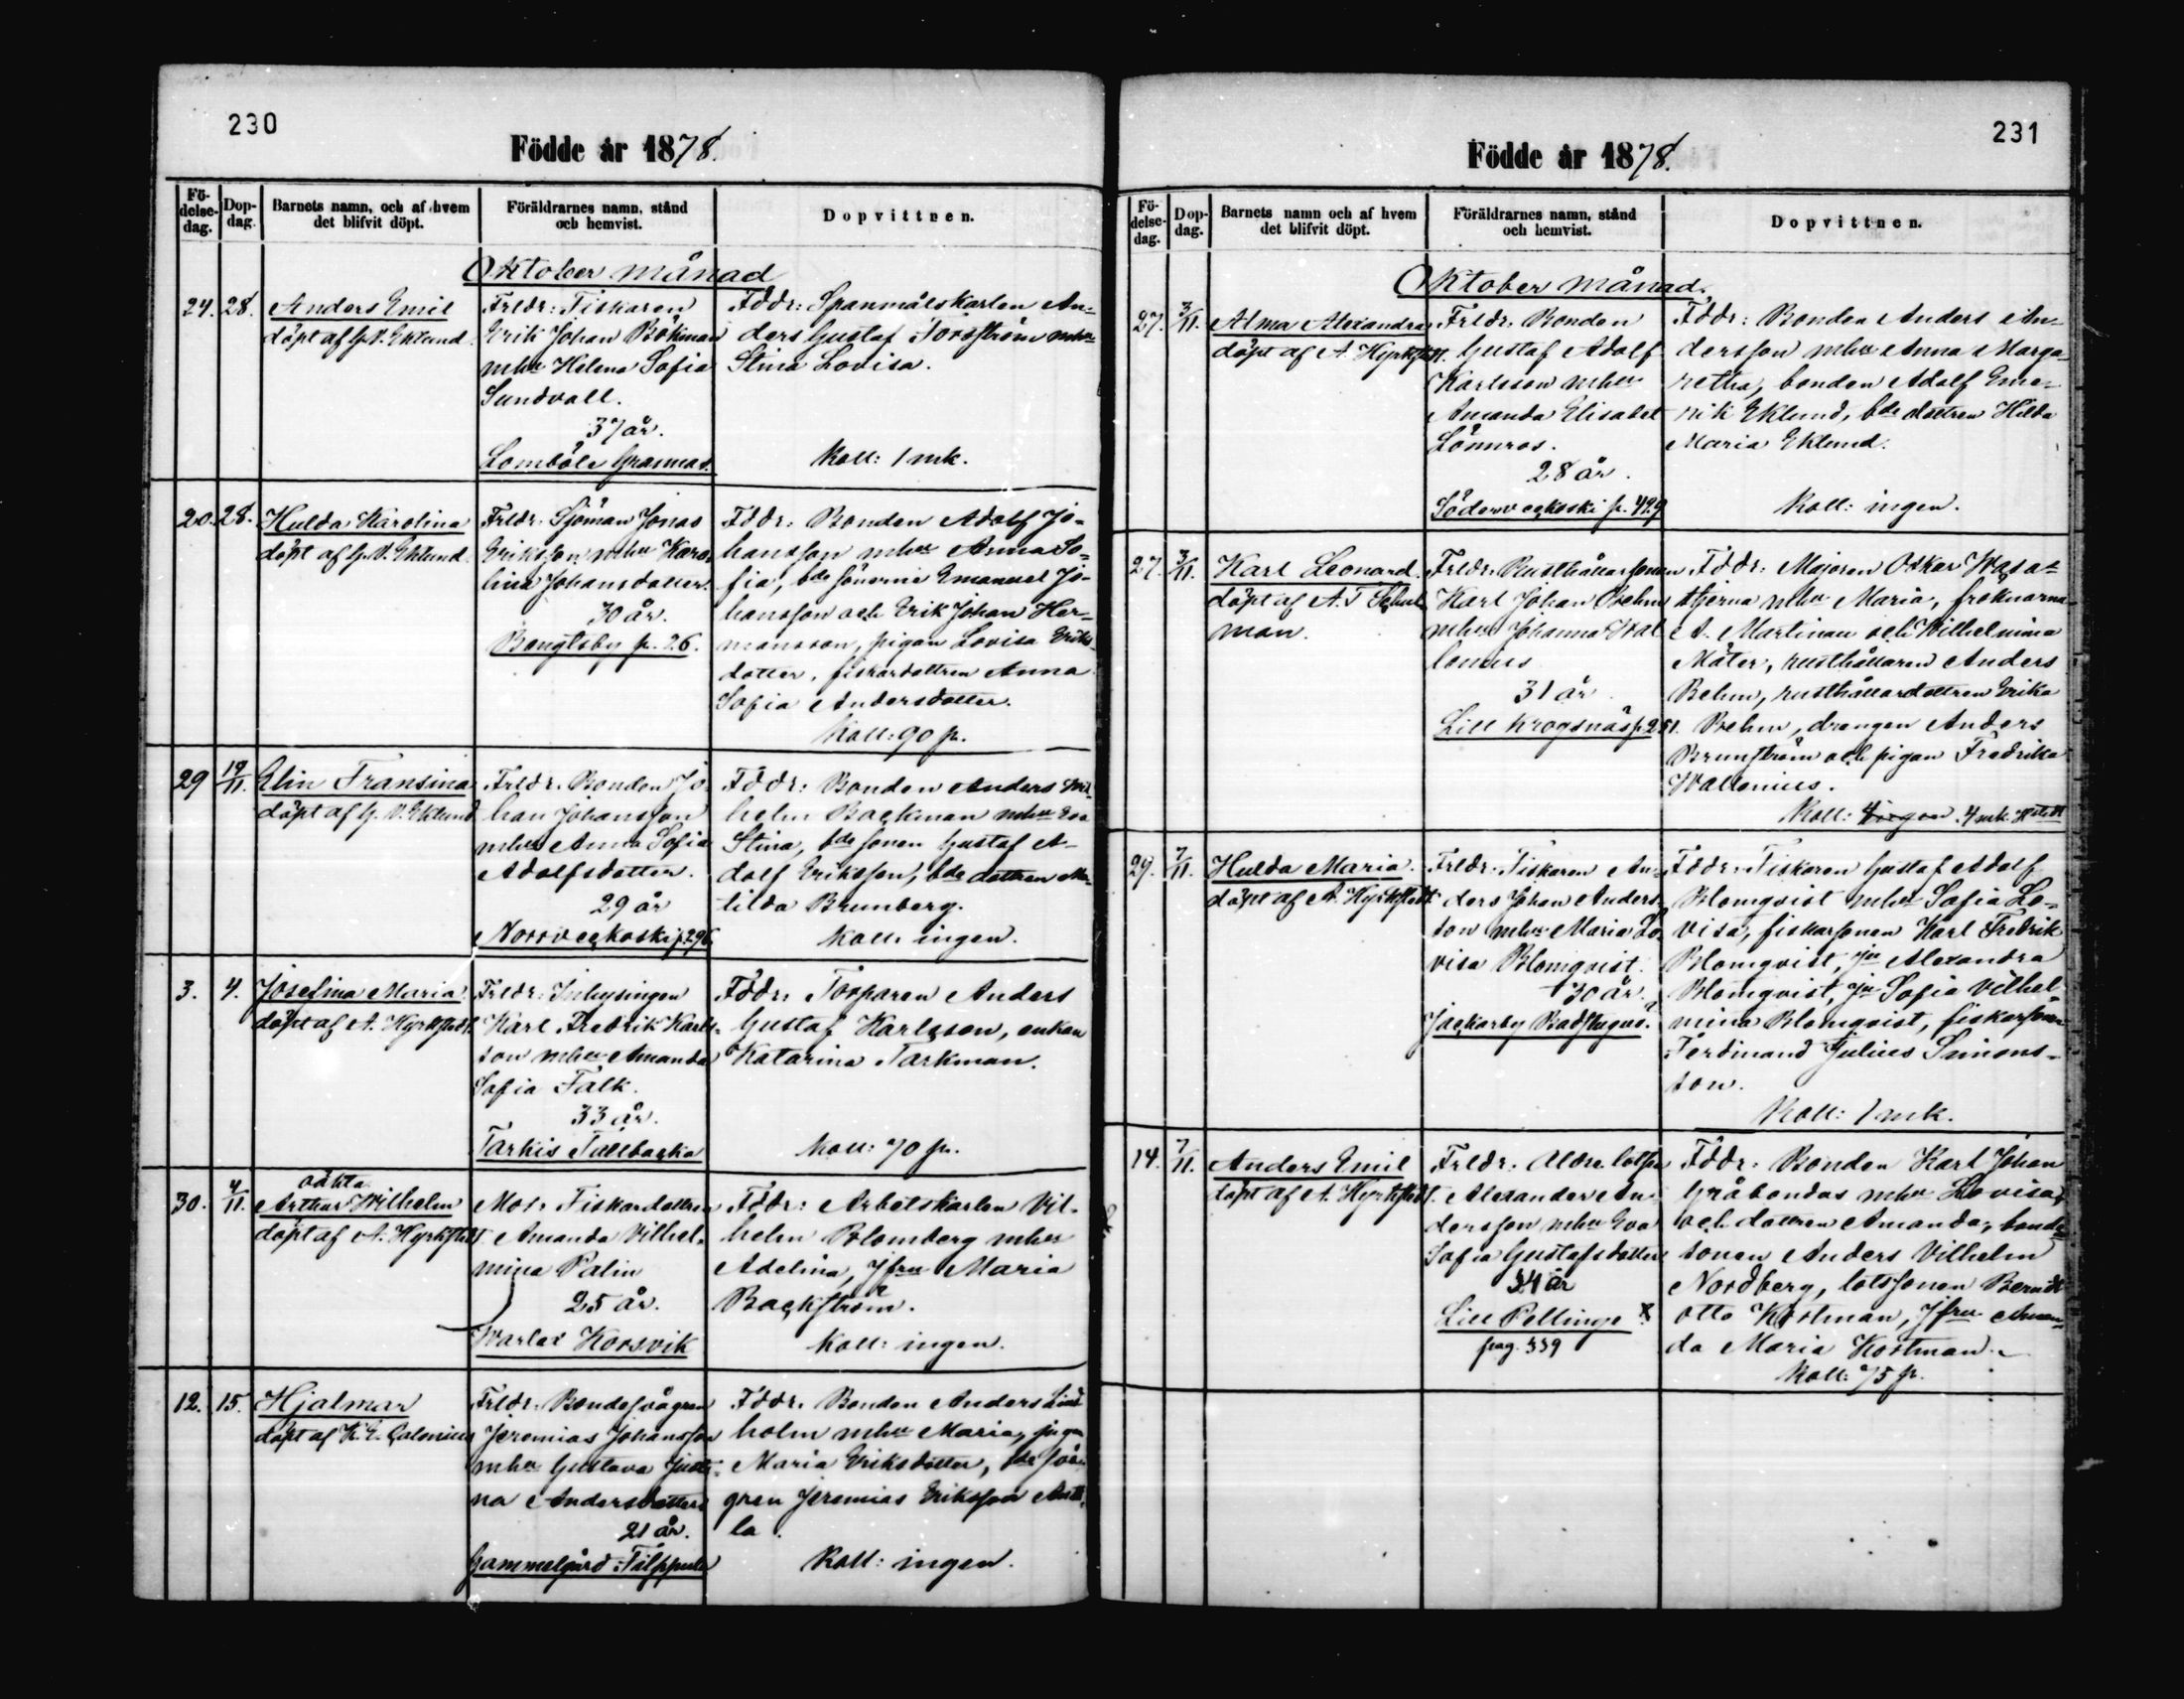 230
Födde år 1878.
Fö-
delse-
dag.
Dop-
dag.
Barnets namn, och af hvem
det blifvit döpt.
Föräldrarnes namn, stånd
och hemvist.
Dopvittnen.
Oktober månad
24. 28.
Anders Emil
döpt af G. V. Eklund.
Frldr: Fiskaren
Erik Johan Bökman
mhu Helena Sofia
Sundvall.
37 år.
Lomböle Grasmas.
Fddr: Spanmålskarlen An-
ders Gustaf Forsström mhu
Stina Lovisa.
Koll: 1 mk.
20. 28.
Hulda Karolina
döpt af G. V. Eklund.
Frldr: Sjöman Jonas
Eriksson mhu Karo-
lina Johansdotter.
30 år.
Bengtsby p. 26.
Fddr: Bonden Adolf Jo-
hansson mhu Anna So-
fia, bde sönerne Emanuel Jo-
hansson och Erik Johan Her-
mansson, pigan Lovisa Eriks-
dotter, fiskardottren Anna
Sofia Andersdotter.
Koll: 90 p.
29 19/11.
Elin Fransina
döpt af G. V. Eklund
Frldr: Bonden Jo-
han Johansson
mhu Anna Sofia
Adolfsdotter.
29 år
Norrveckoski p. 296
Fddr: Bonden Anders Wil-
helm Backman mhu Eva
Stina, bde sonen Gustaf A-
dolf Eriksson, bde dottren Ma-
tilda Brunberg.
Koll: ingen.
3. 4.
Josefina Maria
döpt af A. Hyrkstedt.
Frldr: Inhysingen
Karl Fredrik Karls-
son mhu Amanda
Sofia Falk.
33 år.
Tarkis Tallbacka
Fddr: Torparen Anders
Gustaf Karlsson, enkan
Katarina Tarkman.
Koll: 70 p.
30. 4/11.
oäkta
Arthur Wilhelm
döpt af A. Hyrkstedt.
Mor: Fiskardottren
Amanda Vilhel-
mina Palin
25 år.
Warlax Korsvik
Fddr: Arbetskarlen Vil-
helm Blomberg mhu
Adelina, Jfru Maria
Backström.
Koll: ingen.
12. 15.
Hjalmar
döpt af K. E. Calonius
Frldr: Bondesvågren
Jeremias Johansson
mhu Gustava Justi-
na Andersdotter
21 år.
Gammelgård Tilppula
Fddr: Bonden Anders Lind-
holm mhu Maria, pigan
Maria Eriksdotter, bde svå-
gren Jeremias Eriksson Antt-
la.
Koll: ingen.
231
Födde år 1878.
Fö-
delse-
dag.
Dop-
dag.
Barnets namn och af hvem
det blifvit döpt.
Föräldrarnes namn, stånd
och hemvist.
Dopvittnen.
Oktober månad.
27. 3/11.
Alma Alexandra
döpt af A. Hyrkstedt.
Frldr: Bonden
Gustaf Adolf
Karlsson mhu
Amanda Elisabet
Lönnros.
28 år.
Söderveckoski p. 429
Fddr: Bonden Anders An-
dersson mhu Anna Marga-
retha, bonden Adolf Eme-
rik Eklund, bde dottren Hilda
Maria Eklund.
Koll: ingen.
27. 3/11.
Karl Leonard.
döpt af A. T. Schul-
man.
Frldr: Rusthållarsonen
Karl Johan Behm
mhu Johanna Wal-
lenius
31 år.
Lill Krogsnäs p. 251.
Fddr: Majoren Oskar Wasa-
stjerna mhu Maria, fröknarna
A. Martinau och Wilhelmina
Mäter, rusthållaren Anders
Behm, rusthållardottren Erika
Behm, drängen Anders
Brunström och pigan Fredrika
Wallenius.
Koll: 4 mk
29. 7/11.
Hulda Maria.
döpt af A. Hyrkstedt
Frldr: Fiskaren An-
ders Johan Anders-
son mhu Maria Lo-
visa Blomqvist.
30 år.
Jackarby Badstugus.
Fddr: Fiskaren Gustaf Adolf
Blomqvist mhu Sofia Lo-
visa, fiskarsonen Karl Fredrik
Blomqvist, jfr Alexandra
Blomqvist, jfr Sofia Vilhel-
mina Blomqvist, fiskarsonen
Ferdinand Julius Simons-
son.
Koll: 1 mk.
14. 7/11.
Anders Emil
döpt af A. Hyrkstedt.
Frldr: Äldre lotsen
Alexander An-
dersson mhu Eva
Sofia Gustafsdotter
34 år
Lill Pellinge
pag. 339
Fddr: Bonden Karl Johan
Gråbondas mhu Lovisa,
och dottren Amanda, bonde
sonen Anders Vilhelm
Nordberg, lotssonen Berndt
Otto Kortman, Jfru Aman-
da Maria Kortman.
Koll: 75 p.